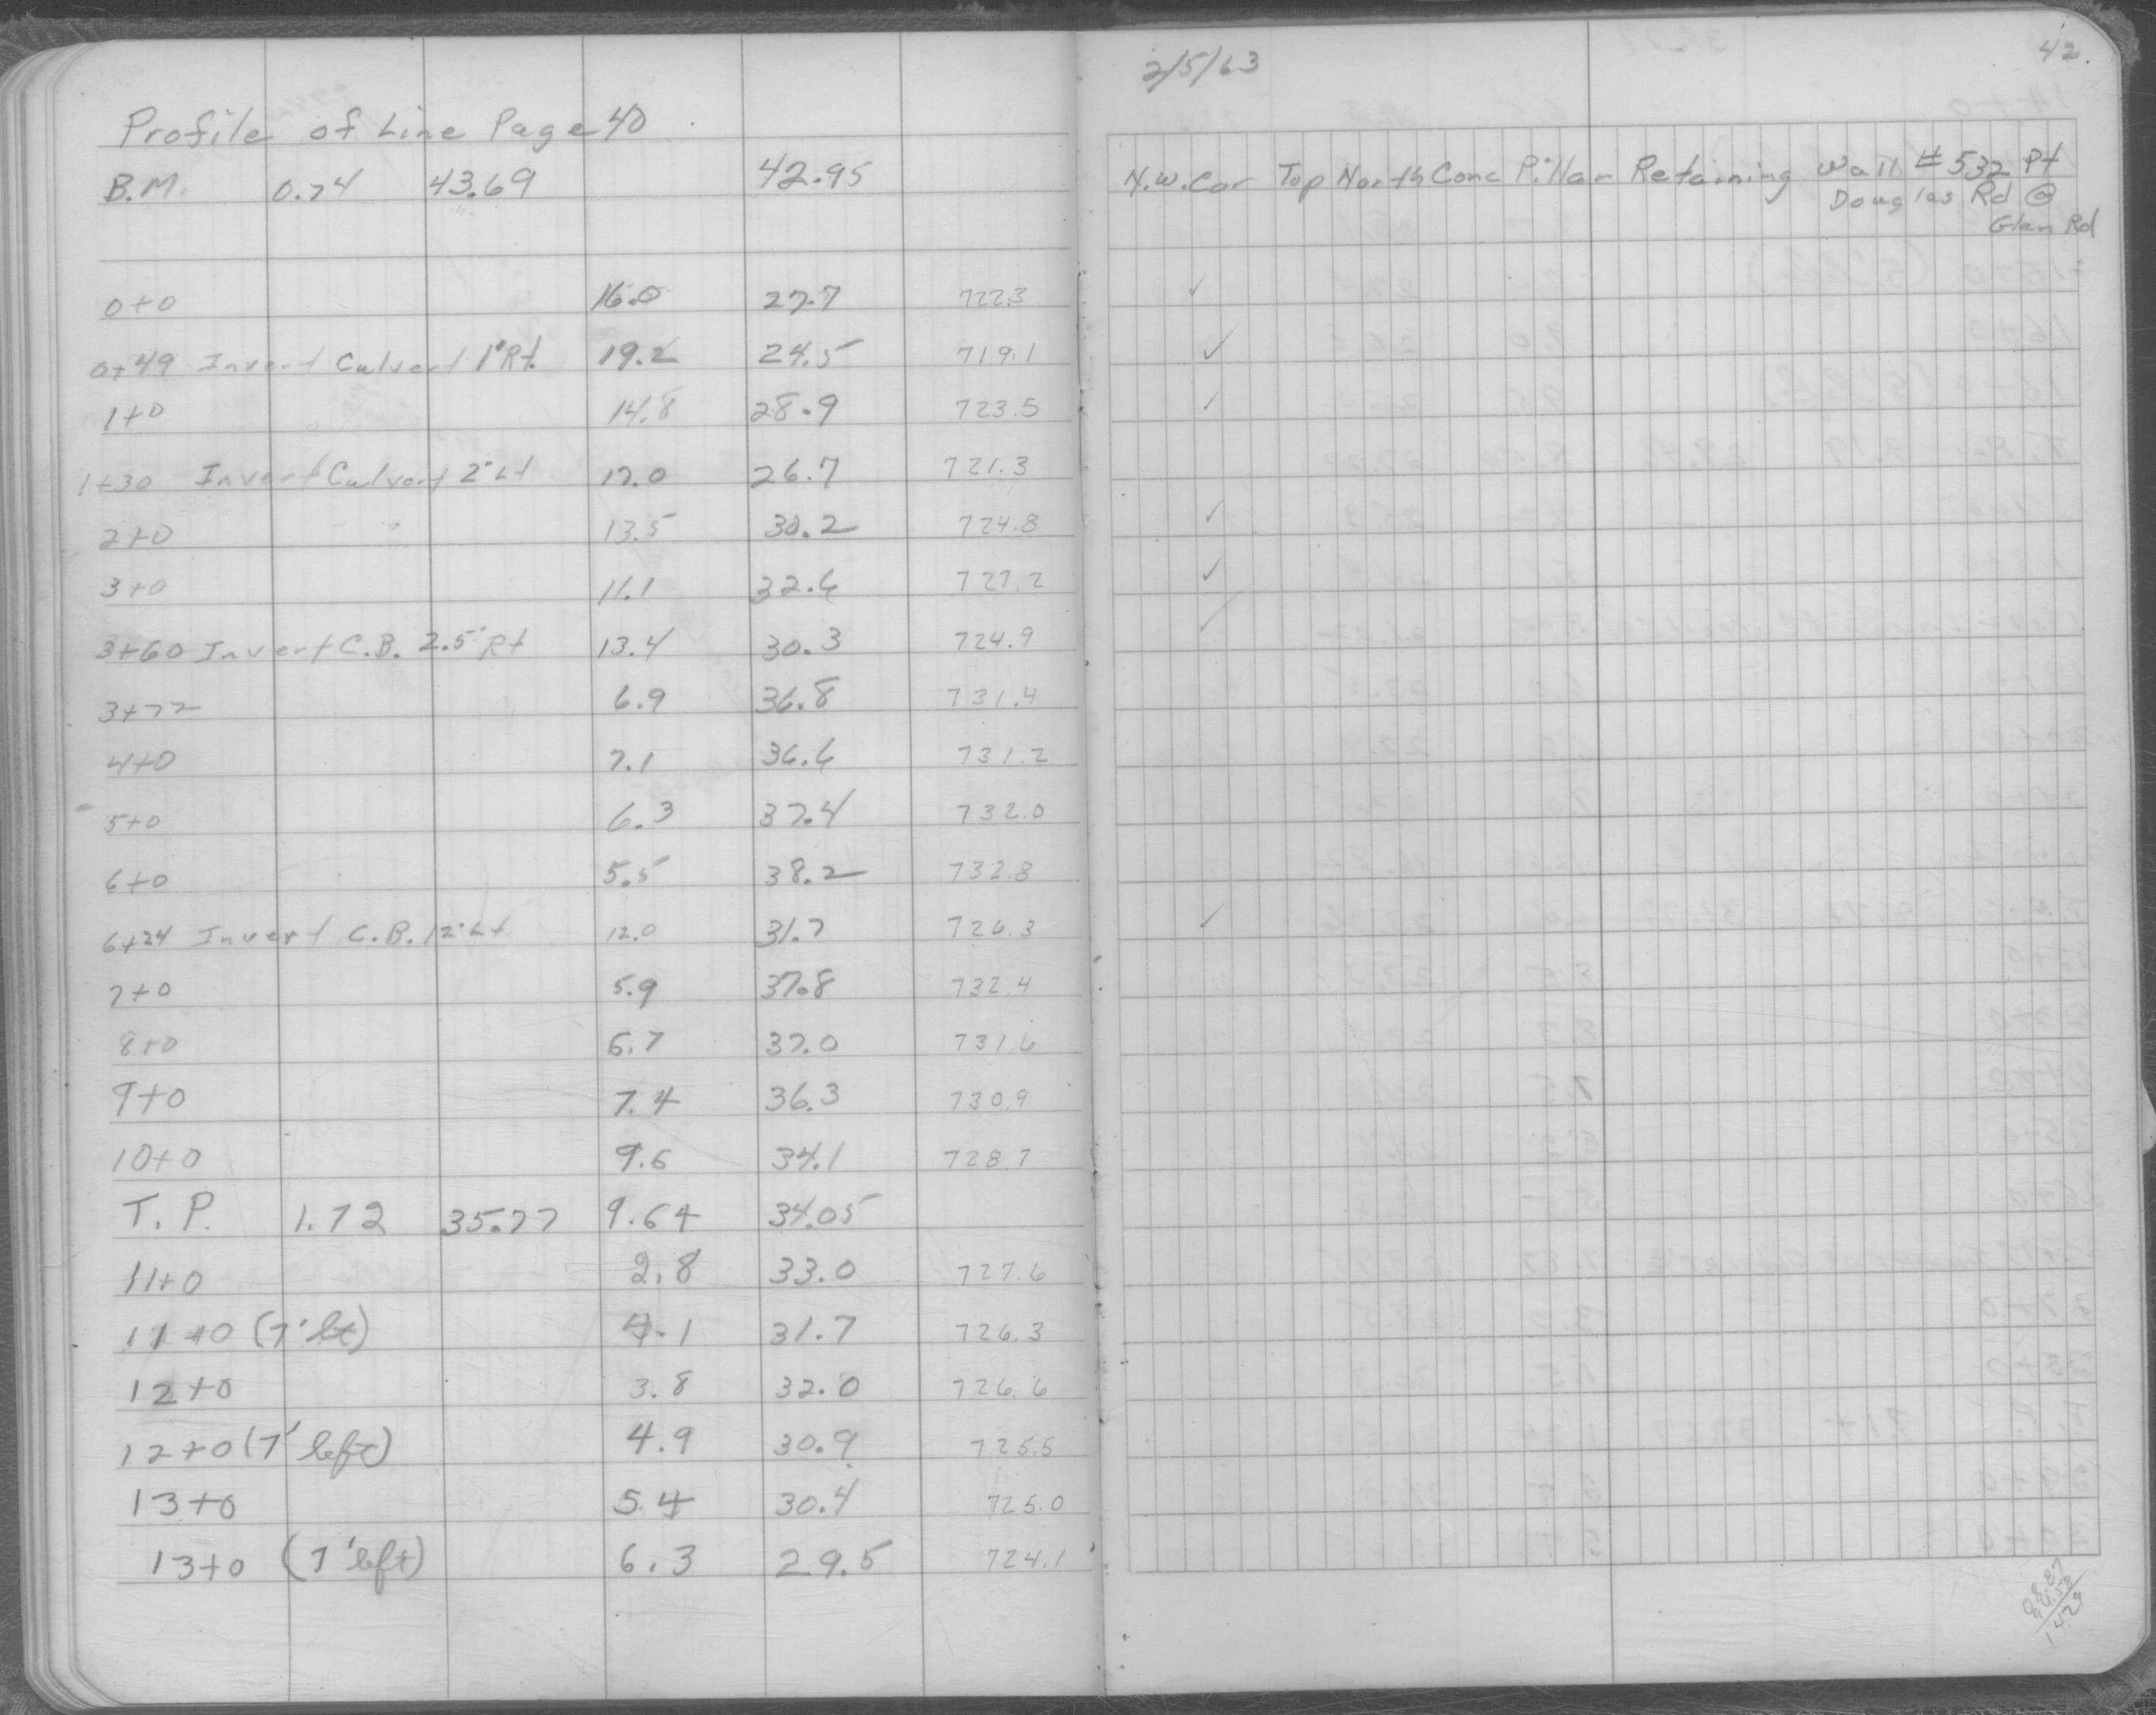 Profile of Line Page 40
B.M. 0.74 43.69 42.95
0+0 16.0 27.7 722.3
0+49 Invert Culvert 1' Rt. 19.2 24.5 719.1
1+0 14.8 28.9 723.5
1+30 Invert Culvert 2' Lt 17.0 26.7 721.3
2+0 13.5 30.2 724.8
3+0 11.1 32.6 727.2
3+60 Invert C.B. 2.5' Rt 13.4 30.3 724.9
3+72 6.9 36.8 731.4
4+0 7.1 36.6 731.2
5+0 6.3 37.4 732.0
6+0 5.5 38.2 732.8
6+24 Invert C.B. 12' Lt 12.0 31.7 726.3
7+0 5.9 37.8 732.4
8+0 6.7 37.0 731.6
9+0 7.4 36.3 730.9
10+0 9.6 34.1 728.7
T.P. 1.72 35.77 9.64 34.05
11+0 2.8 33.0 727.6
11+0 (7' lt) 4.1 31.7 726.3
12+0 3.8 32.0 726.6
12+0 (7' left) 4.9 30.9 725.5
13+0 5.4 30.4 725.0
13+0 (7' left) 6.3 29.5 724.1
2/5/63
42.
N.W. Cor Top North Conc Pillar Retaining Wall # 532 Pt
Douglas Rd @
Glen Rd